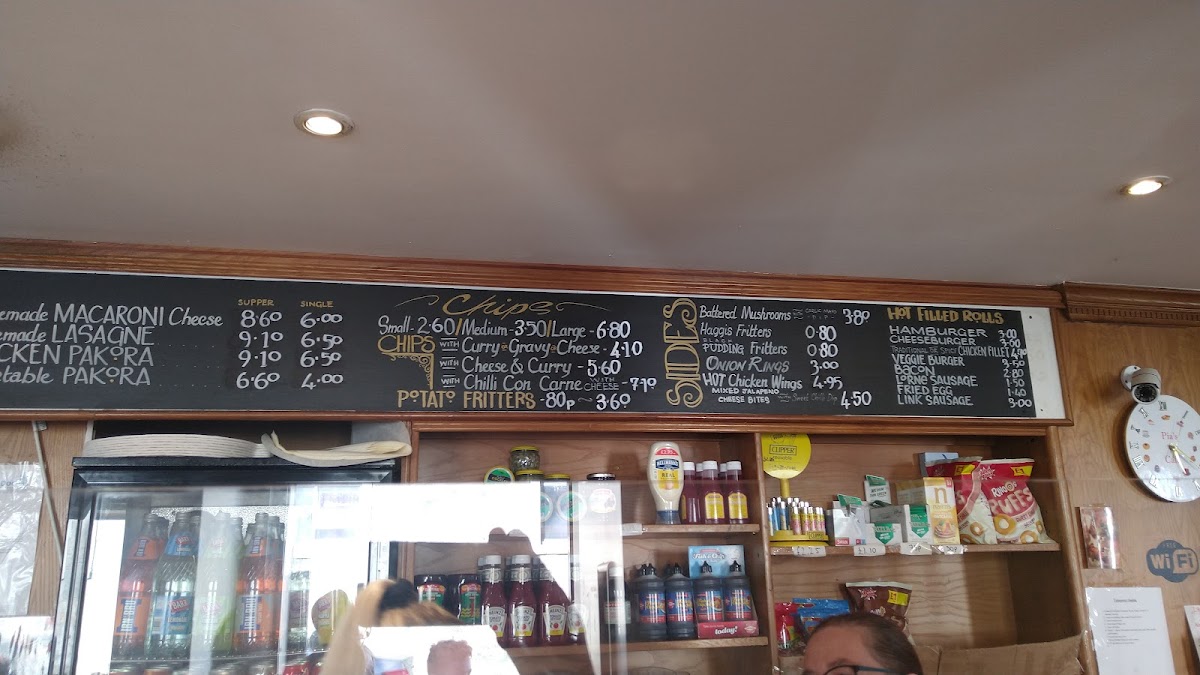 SUPPER SINGLE
emade MACARONI Cheese 8.60 6.00
emade LASAGNE 9.10 6.50
CKEN PAKORA 9.10 6.50
etable PAKORA 6.60 4.00
Chips
Small-2.60/Medium-3.50/Large-6.80
CHIPS WITH Curry-Gravy-Cheese-4.10
WITH Cheese & Curry-5.60
WITH Chilli Con Carne WITH CHEESE-7.10
POTATO FRITTERS-80p~3.60
SIDES
Battered Mushrooms 3.80
Haggis Fritters 0.80
BLACK PUDDING Fritters 0.80
ONION RINGS 3.00
HOT Chicken Wings 4.95
MIXED JALAPENO
CHEESE BITES Sweet Chilli Dip 4.50
HOT FILLED ROLLS
HAMBURGER 3.00
CHEESEBURGER 3.00
TRADITIONAL OR SPICY CHICKEN FILLET
VEGGIE BURGER
BACON 2.80
LORNE SAUSAGE 1.50
FRIED EGG 1.40
LINK SAUSAGE 3.00
CLIPPER
HELLMANN'S
REAL
HEINZ
HEINZ
BARR
today!
£1.10
n
£1
RINGOS
PUFFS
£1
Pia's
FREE
WiFi